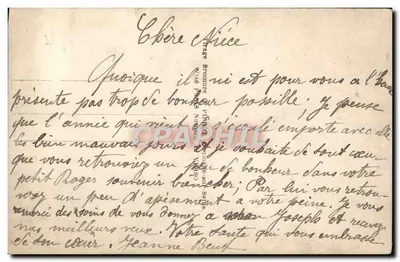 Chère Nièce
Quoique il ni est pour vous a l'
présente pas trop de bonheur possible. Je pense
que l'année qui emporte avec elle
les bien mauvais jours et je souhaite de tout cœur
que vous retrouviez un peu de bonheur dans votre
petit Roger souvenir bien cher; Par lui vous retrou-
vez un peu d'apèsement a votre peine. Je vous
remercie des soins de vous donnez a Joseph et recevez
mes meilleurs vœux. Votre tante qui vous embrasse
de son cœur. Jeanne
CPARAMA